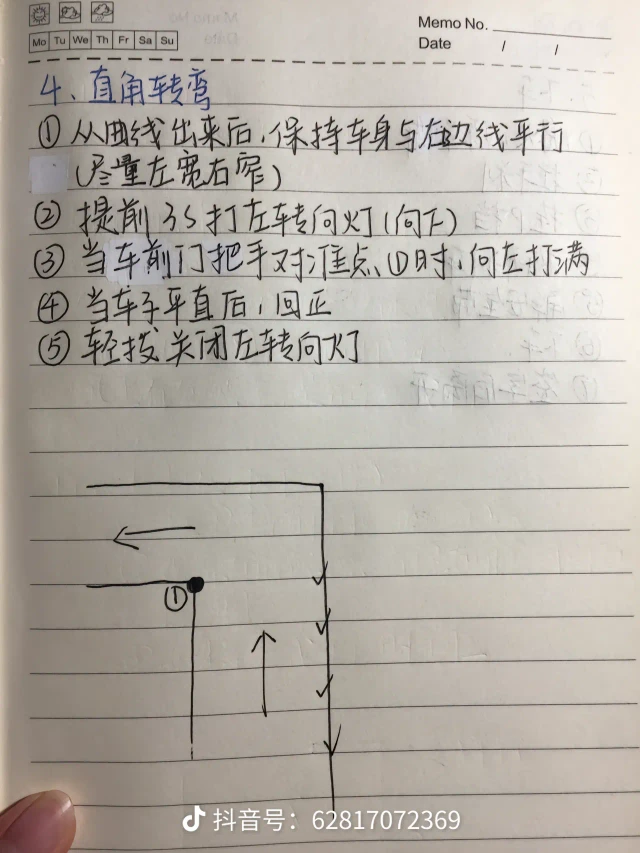 Memo No.
Mo Tu We Th Fr Sa Su
Date / /
4、直角转弯
① 从曲线出来后,保持车身与右边线平行
(尽量左宽右窄)
② 提前3S打左转向灯(向下)
③ 当车前门把手对准点①时,向左打满
④ 当车子平直后,回正
⑤ 轻拨关闭左转向灯
①
抖音号:62817072369